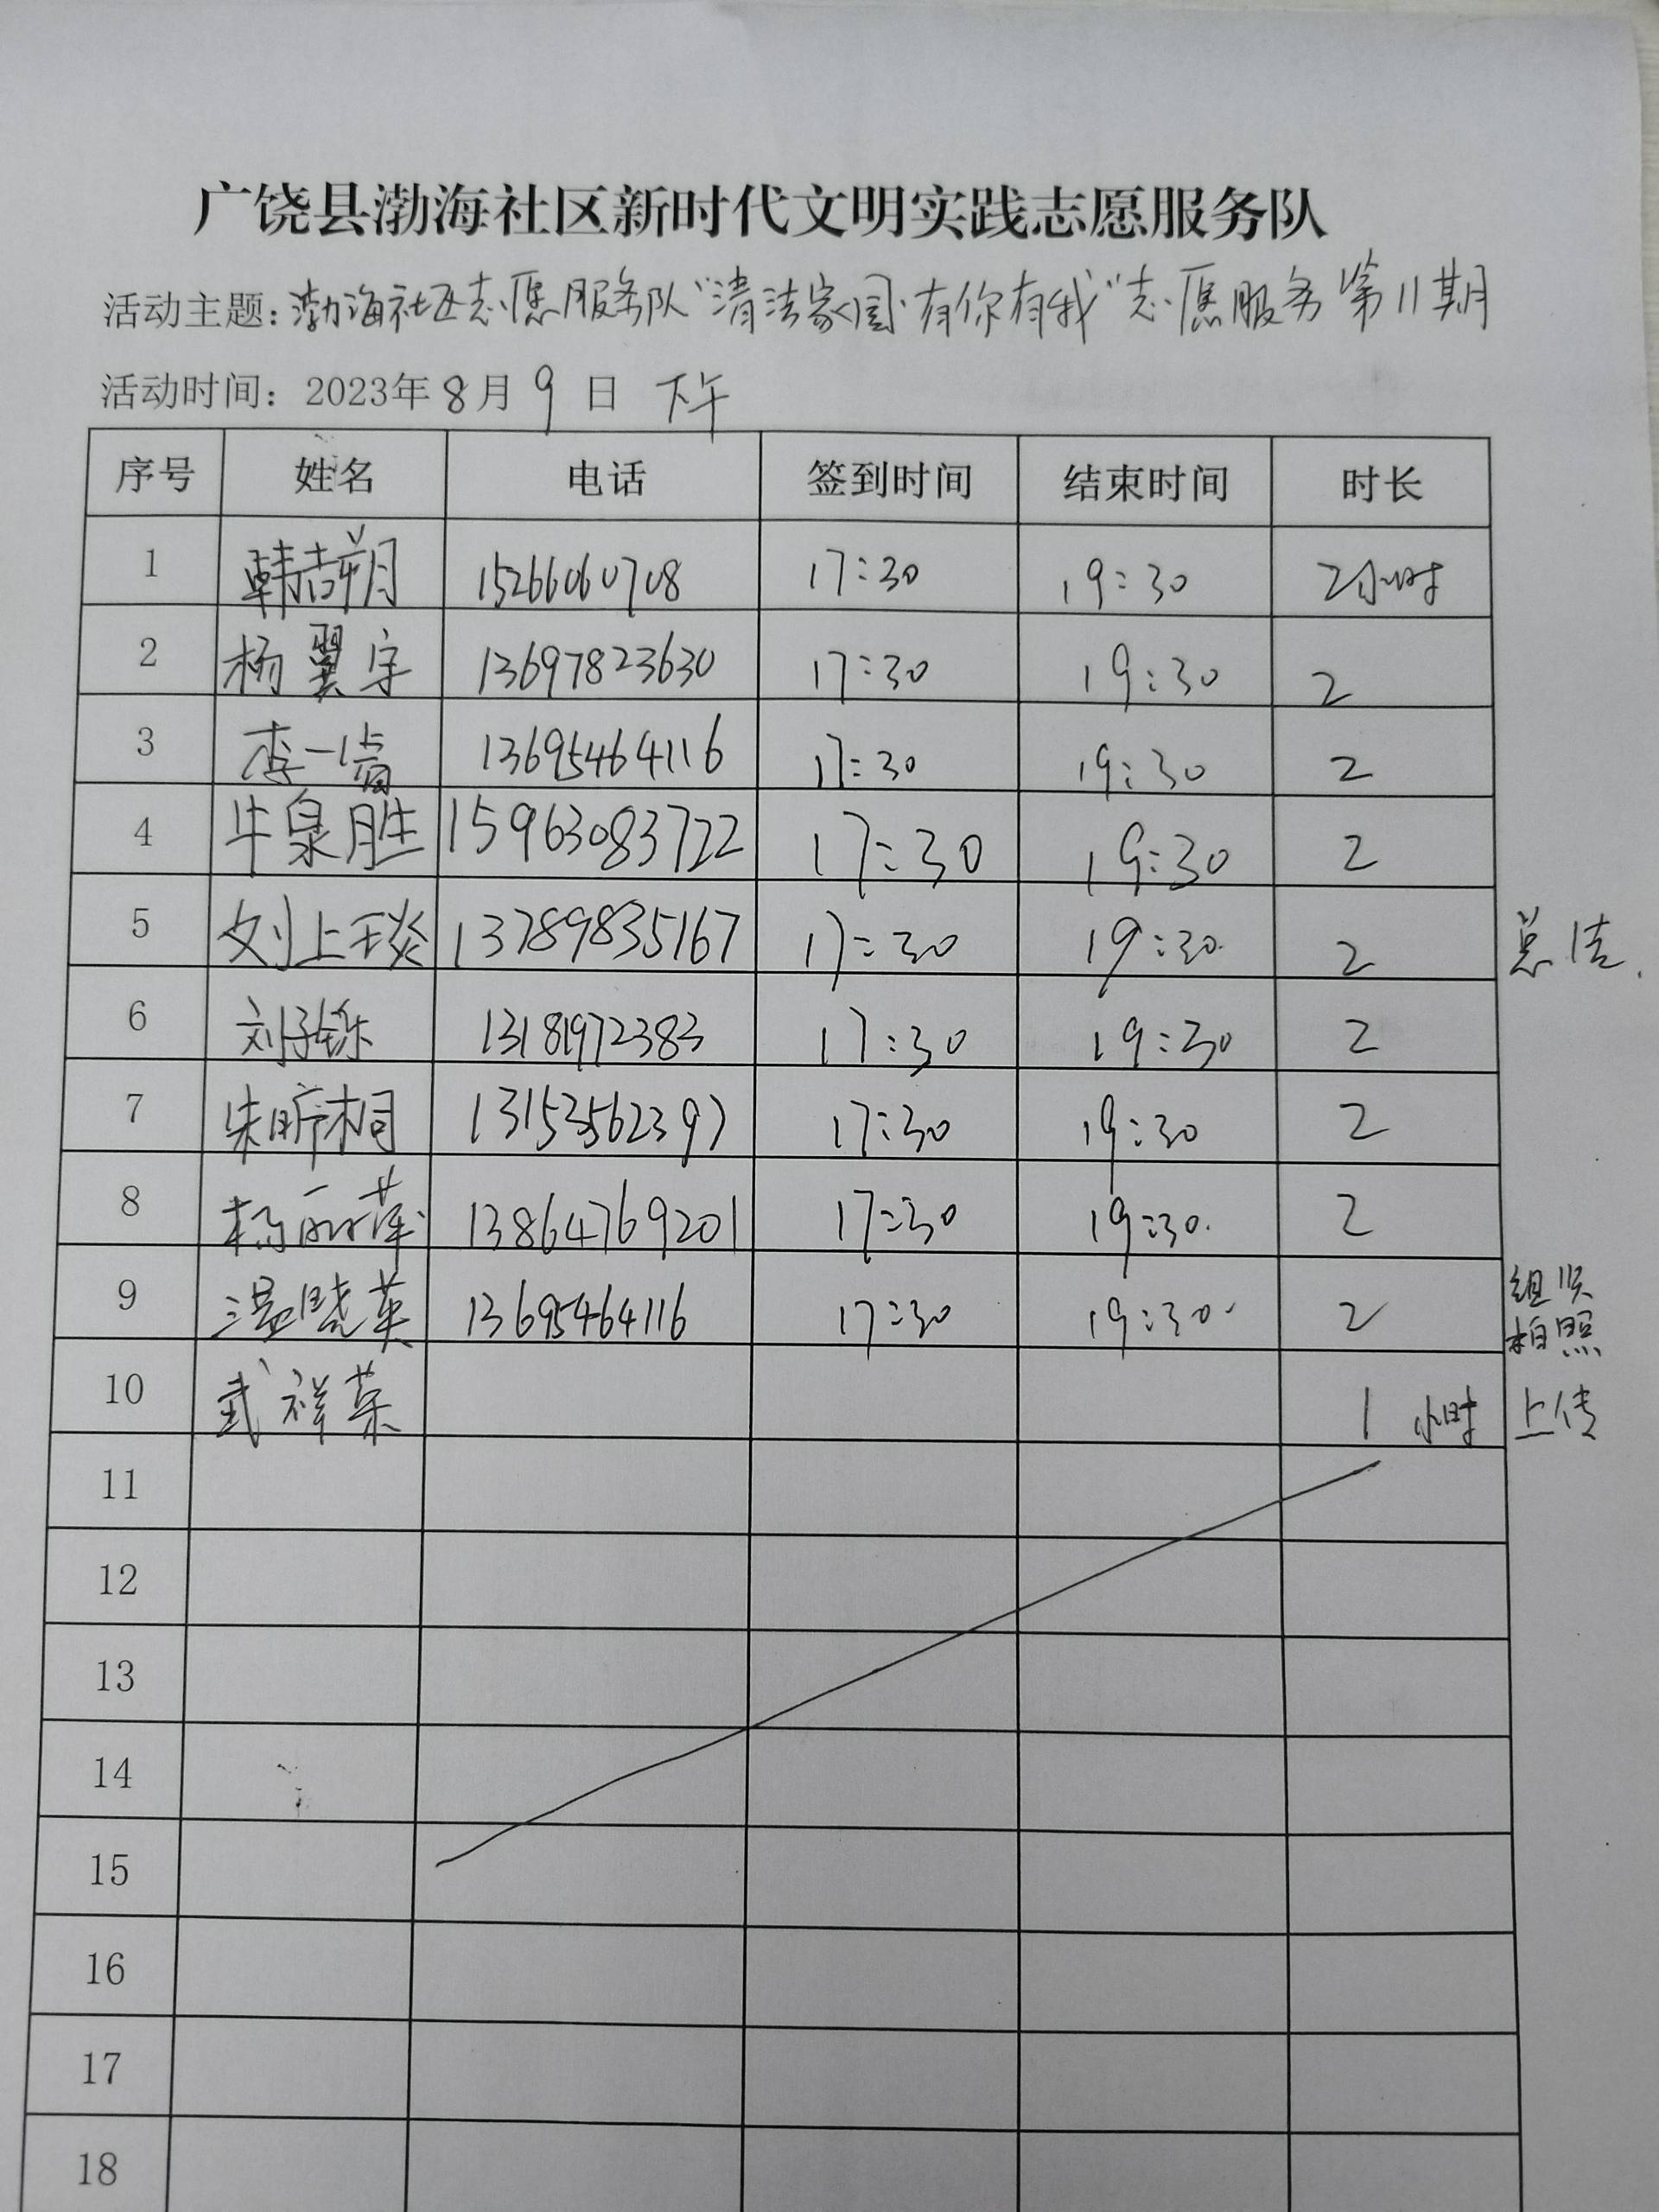 广饶县渤海社区新时代文明实践志愿服务队
活动主题：渤海社区志愿服务队“清洁家园·有你有我”志愿服务第11期
活动时间：2023年8月9日 下午
序号 姓名 电话 签到时间 结束时间 时长
1 韩吉朔 15266060708 17:30 19:30 2小时
2 杨翼宇 13697823630 17:30 19:30 2
3 李一 13695464116 17:30 19:30 2
4 牛泉胜 15963083722 17:30 19:30 2
5 刘上琰 13789835167 17:30 19:30 2 总结.
6 刘子铄 13181972383 17:30 19:30 2
7 朱昕桐 13153562397 17:30 19:30 2
8 杨丽萍 13864769201 17:30 19:30. 2
9 温晓英 13695464116 17:30 19:30. 2 组织 拍照
10 武祥菜 1小时 上传
11
12
13
14
15
16
17
18